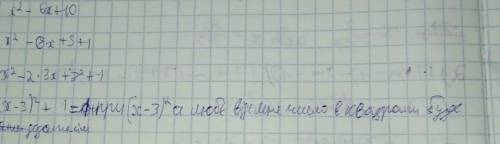 x² - 6x + 10
x² - 6x + 9 + 1
x² - 2 · 3x + 3² + 1
(x - 3)² + 1 = при (x - 3)² а число в квадрате буде